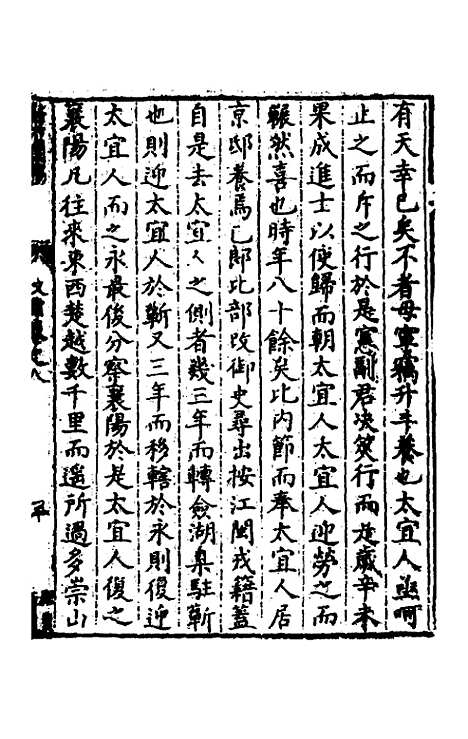 有天幸已矣不者母寧竊升斗養也太宜人亟呵
止之而斥之行於是憲副君决筴行而是歲辛未
果成進士以便歸而朝太宜人太宜人迎勞之而
囅然喜也時年八十餘矣比内節而奉太宜人居
京邸養焉已郎比部改御史尋出按江閩戎籍蓋
自是去太宜人之側者幾三年而轉僉湖臬駐蘄
也則迎太宜人於蘄又三年而移轄於永則復迎
太宜人而之永最後分察襄陽於是太宜人復之
襄陽凡往來東西楚越數千里而遥所過多崇山